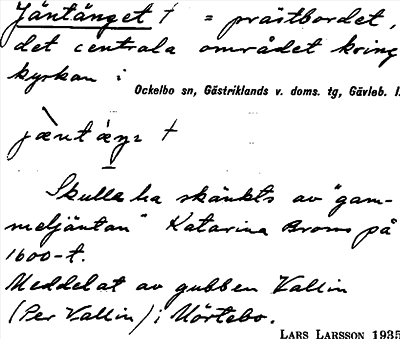 Jäntänget † = prästbordet,
det centrala området kring
kyrkan i
Ockelbo sn, Gästriklands v. doms. tg, Gävleb. l.
†
Skulle ha skänkts av "gam-
meljäntan" Katarina Broms på
1600-t.
Meddelat av gubben Vallin
(Per Vallin) i Mörtebo.
LARS LARSSON 1935